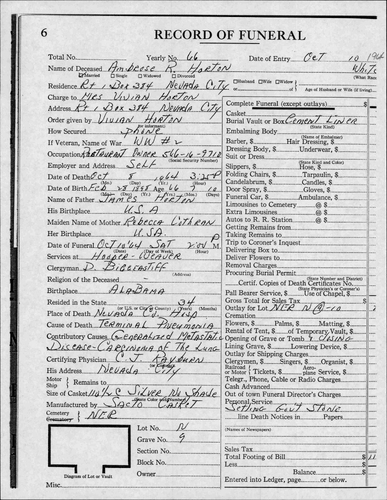 6 RECORD OF FUNERAL
Total No. Yearly No. 66 Date of Entry Oct 10 1964
Name of Deceased Ambrose R. Horton White
Married Single Widowed Divorced (What Race)
Residence Rt 1 Box 284 Nevada City Husband Wife Widow or
Charge to Mrs Vivian Horton Age of Husband or Wife (if living)
Address Rt 1 Box 284 Nevada City
Order given by Vivian Horton
How Secured phone
If Veteran, Name of War WW #2
Occupation Restaurant Owner 546-16-9710
(Social Security Number)
Employer and Address Self
Date of Death Oct 8 1964 3:25 P M
Date of Birth Feb 28 1898 Age 66 7 10
Name of Father James Horton
His Birthplace U.S.A
Maiden Name of Mother Rebecca Cothran
Her Birthplace U.S.A.
Date of Funeral Oct 10 64 Sat 2:00 P M
Services at Hooper-Weaver
(Address)
Clergyman D. Biggerstiff
Religion of the Deceased
Birthplace Alabama
Resided in the State 34
Place of Death Nevada Co. Hosp
Cause of Death Terminal Pneumonia
Contributory Causes Generalized Metastatic
Disease - Carcinoma of the Lung
Certifying Physician C J Rayburn
His Address Nevada City
Motor
Ship Remains to
Size of Casket Silver Nu Shade
Manufactured by Sacto Casket
Cemetery NER
Crematory
Lot No. N
Grave No. 9
Section No.
Block No.
Owner
Diagram of Lot or Vault
Misc.
Complete Funeral (except outlays) $
Casket
Burial Vault or Box Cement Liner
(State Kind)
Embalming Body
(Name of Embalmer)
Barber, $ Hair Dressing, $
Dressing Body, $ Underwear, $
Suit or Dress
(State Kind and Color)
Slippers, $ Hose, $
Folding Chairs, $ Tarpaulin, $
Candelabrum, $ Candles, $
Door Spray, $ Gloves, $
Funeral Car, $ Ambulance, $
Limousines to Cemetery @ $
Extra Limousines @ $
Autos to R. R. Station @ $
Getting Remains from
Taking Remains to
Trip to Coroner's Inquest
Delivering Box to
Deliver Flowers to
Removal Charges
Procuring Burial Permit
(State Number and District)
Certif. Copies of Death Certificate
(State Physician's or Coroner's)
Pall Bearer Service, $ Use of Chapel, $
Gross Total for Sales Tax $
Outlay for Lot NER N @-10
Cremation
Flowers, $ Palms, $ Matting, $
Rental of Tent, $ of Temporary, Vault, $
Opening of Grave or Tomb & Closing
Lining Grave, $ Lowering Device, $
Outlay for Shipping Charges
Clergyman, $ Singers, $ Organist, $
Railroad or Motor Tickets, $ Aero-plane Service, $
Telegr., Phone, Cable or Radio Charges
Cash Advanced
Out of town Funeral Director's Charge
Personal Service
Setting Govt Stone
line Death Notices in Papers
(Names of Newspapers)
Sales Tax
Total Footing of Bill $
Less
Balance $
Entered into Ledger, page or below.